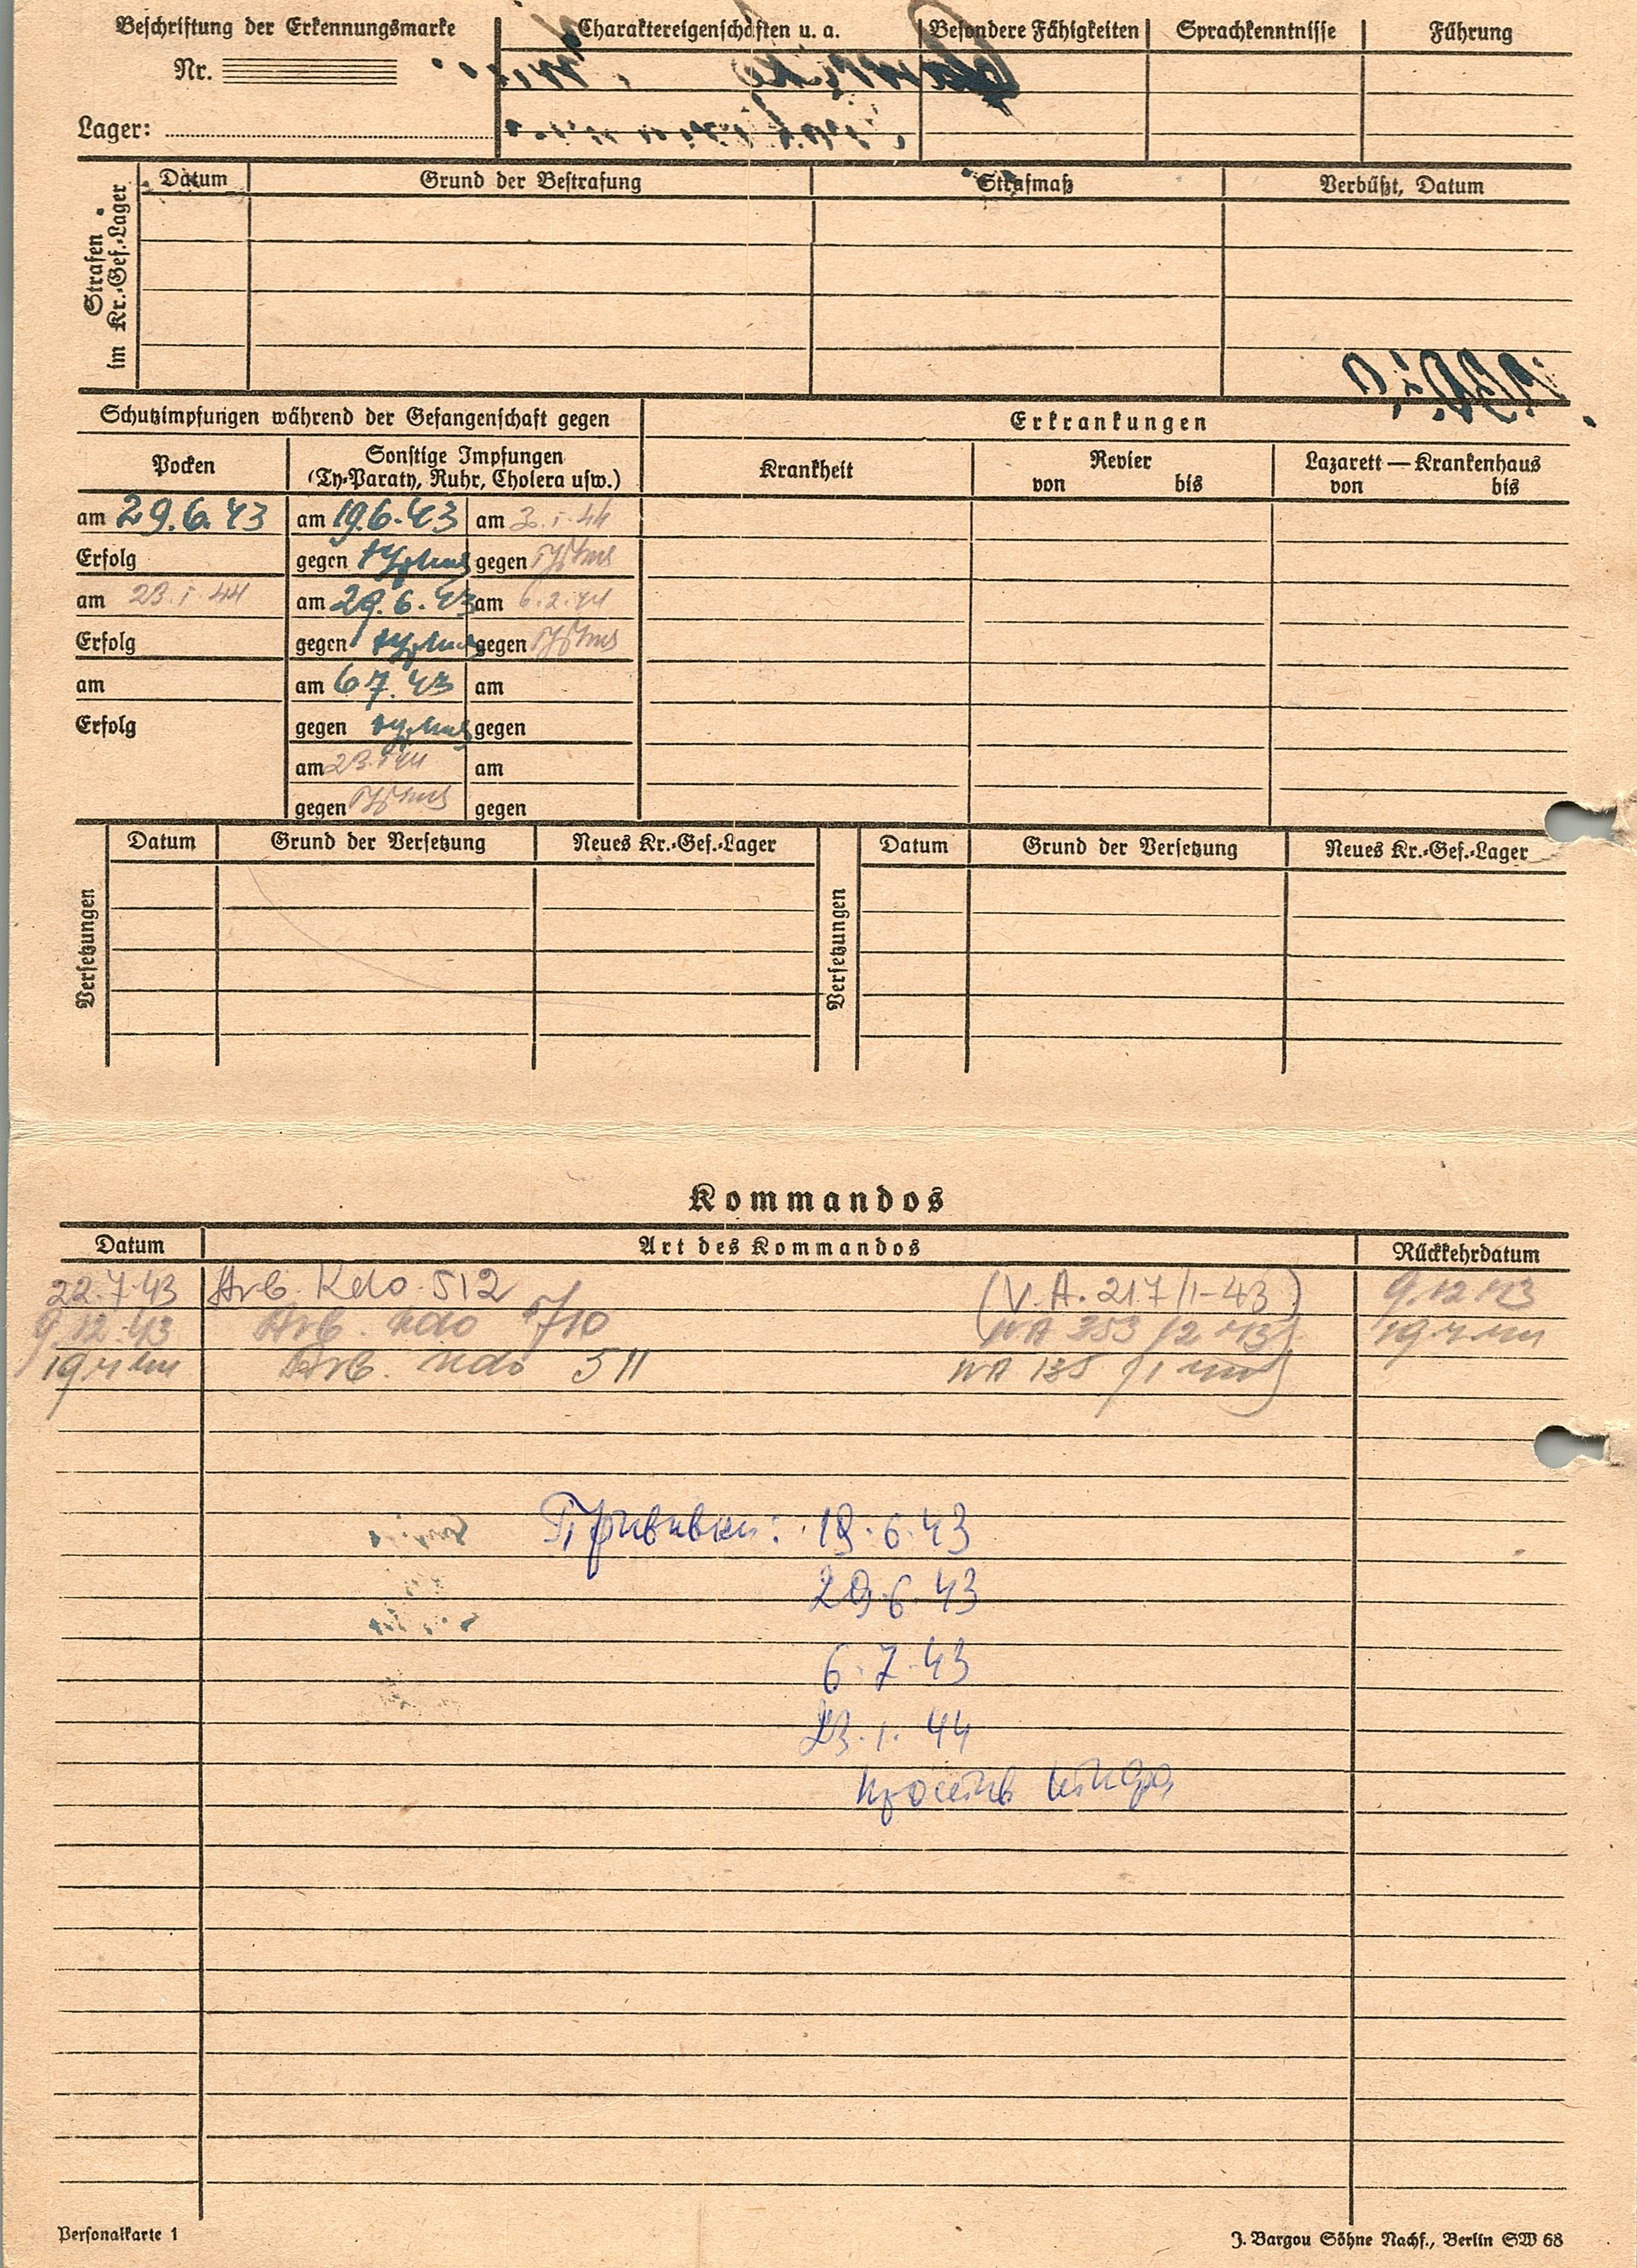 Beschriftung der Erkennungsmarke Charaktereigenschaften u. a. Besondere Fähigkeiten Sprachkenntnisse Führung
Nr.
Lager:
Strafen im Kr.-Gef.-Lager
Datum Grund der Bestrafung Strafmaß Verbüßt, Datum
Schutzimpfungen während der Gefangenschaft gegen Erkrankungen
Pocken Sonstige Impfungen (Ty-Paraty, Ruhr, Cholera usw.) Krankheit Revier Lazarett — Krankenhaus
von bis von bis
am 29.6.43 am 19.6.43 am
Erfolg gegen typhus gegen Typhus
am 23.1.44 am 29.6.43 am 6.2.44
Erfolg gegen typhus gegen Typhus
am am 6 7. 43 am
Erfolg gegen typhus gegen
am 23.1.44 am
gegen Typhus gegen
Versetzungen
Datum Grund der Versetzung Neues Kr.-Gef.-Lager
Versetzungen
Datum Grund der Versetzung Neues Kr.-Gef.-Lager
Kommandos
Datum Art des Kommandos Rückkehrdatum
22.7.43 Arb. Kdo. 512 (V.A. 217/1-43) 9.12.43
9.12.43 Arb. Kdo 5/10 353 19.4.44
19.4.44 Arb. Kdo 511
Прививки: 19.6.43
29.6.43
6.7.43
23.1.44
против тифа
Personalkarte 1 J. Bargou Söhne Nachf., Berlin SW 68